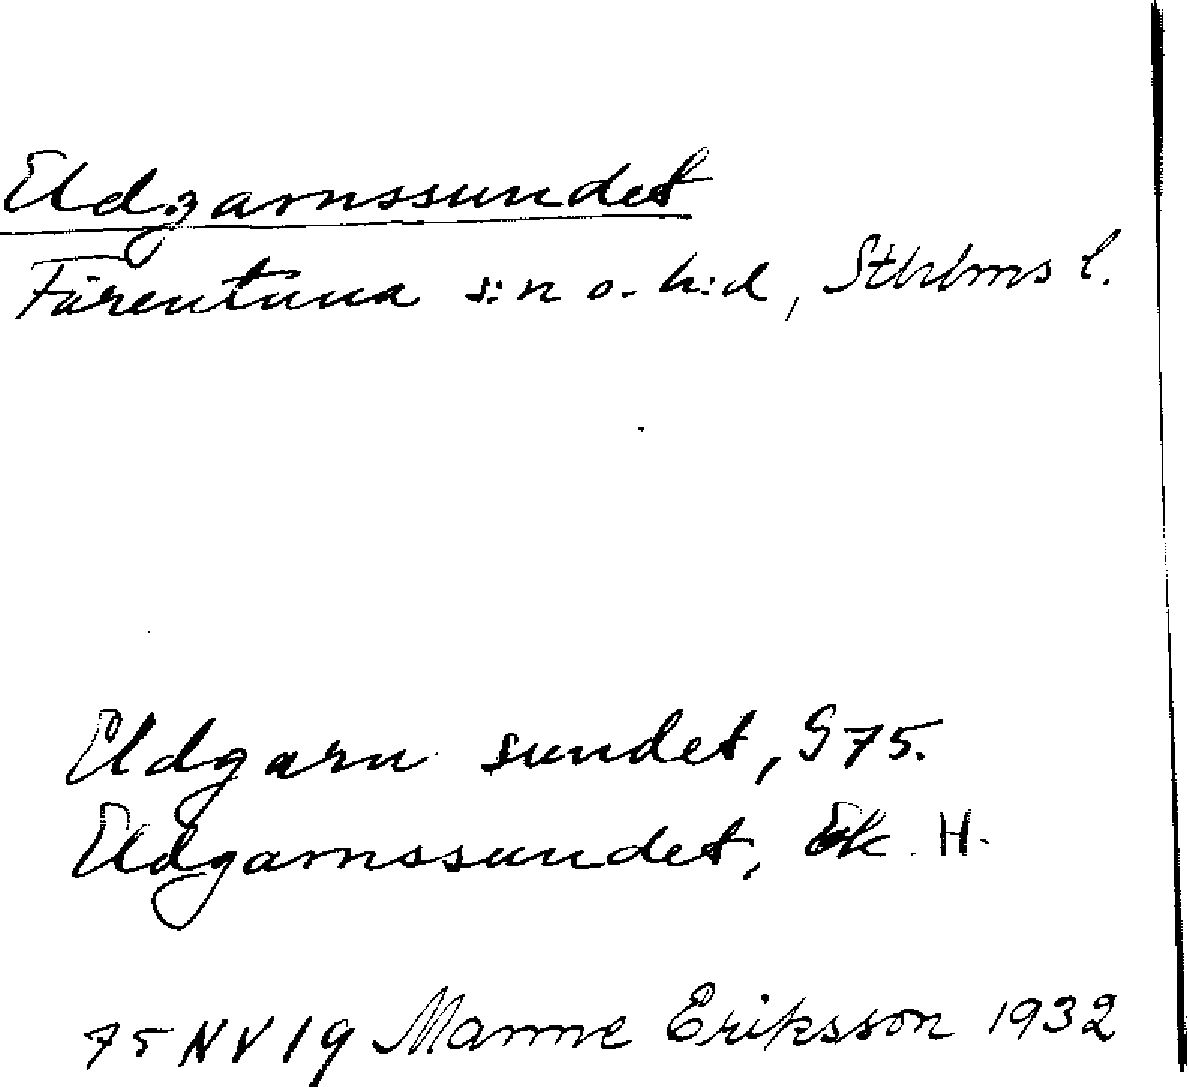 Eldgarnssundet
Färentuna s:n o. h:d, Sthlms l.
Eldgarn sundet, G 75.
Eldgarnssundet, Ek. H.
75 NV 19 Manne Eriksson 1932